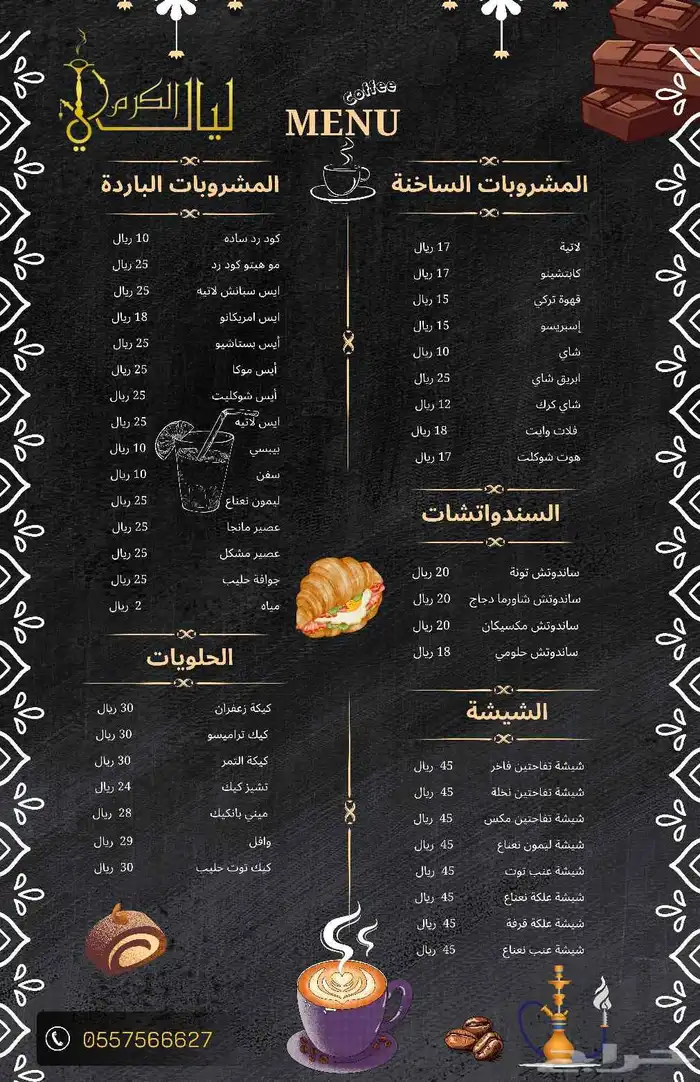 ليالي الكرم
Coffee
MENU
المشروبات الساخنة
لاتية 17 ريال
كابتشينو 17 ريال
قهوة تركي 15 ريال
إسبريسو 15 ريال
شاي 10 ريال
ابريق شاي 25 ريال
شاي كرك 12 ريال
فلات وايت 18 ريال
هوت شوكلت 17 ريال
السندواتشات
ساندوتش تونة 20 ريال
ساندوتش شاورما دجاج 20 ريال
ساندوتش مكسيكان 20 ريال
ساندوتش حلومي 18 ريال
الشيشة
شيشة تفاحتين فاخر 45 ريال
شيشة تفاحتين نخلة 45 ريال
شيشة تفاحتين مكس 45 ريال
شيشة ليمون نعناع 45 ريال
شيشة عنب توت 45 ريال
شيشة علكة نعناع 45 ريال
شيشة علكة قرفة 45 ريال
شيشة عنب نعناع 45 ريال
المشروبات الباردة
كود رد ساده 10 ريال
مو هيتو كود رد 25 ريال
ايس سبانش لاتيه 25 ريال
ايس امريكانو 18 ريال
أيس بستاشيو 25 ريال
أيس موكا 25 ريال
أيس شوكليت 25 ريال
ايس لاتيه 25 ريال
بيبسي 10 ريال
سفن 10 ريال
ليمون نعناع 25 ريال
عصير مانجا 25 ريال
عصير مشكل 25 ريال
جوافة حليب 25 ريال
مياه 2 ريال
الحلويات
كيكة زعفران 30 ريال
كيك تراميسو 30 ريال
كيكة التمر 30 ريال
تشيز كيك 24 ريال
ميني بانكيك 28 ريال
وافل 29 ريال
كيك توت حليب 30 ريال
0557566627
حراج